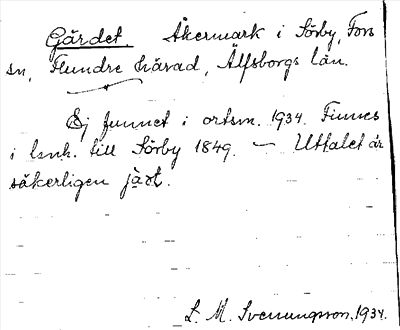 Gärdet. Åkermark i Sörby, Fors
sn, Flundre härad, Älfsborgs län.
Ej funnet i ortsn. 1934. Finnes
i lsnk. till Sörby 1849. — Uttalet är
säkerligen
S. M. Svenungsson, 1934.